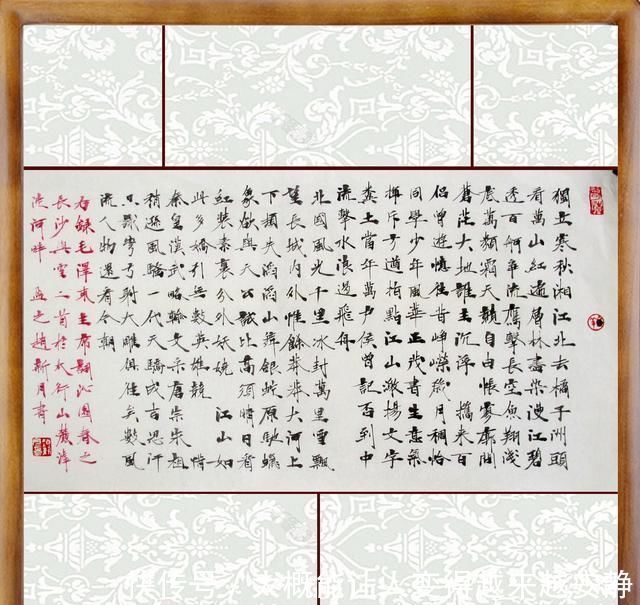 獨立寒秋湘江北去橘子洲頭
看萬山紅遍層林盡染漫江碧
透百舸爭流鷹擊長空魚翔淺
底萬類霜天競自由悵寥廓問
蒼茫大地誰主沉浮 攜來百
侶曾遊憶往昔崢嶸歲月稠恰
同學少年風華正茂書生意氣
揮斥方遒指點江山激揚文字
糞土當年萬戶侯曾記否到中
流擊水浪遏飛舟
北國風光千里冰封萬里雪飄
望長城內外惟餘莽莽大河上
下頓失滔滔山舞銀蛇原馳蠟
象欲與天公試比高須晴日看
紅裝素裹分外妖嬈 江山如
此多嬌引無數英雄競 惜
秦皇漢武略輸文采唐宗宋祖
稍遜風騷一代天驕成吉思汗
只識彎弓射大雕俱往矣數風
流人物還看今朝
右錄毛澤東主席詞沁園春之
長沙與雪二首於太行山麓
沱河畔 趙新月書
快传号 / 大概能让人变得越来越安静